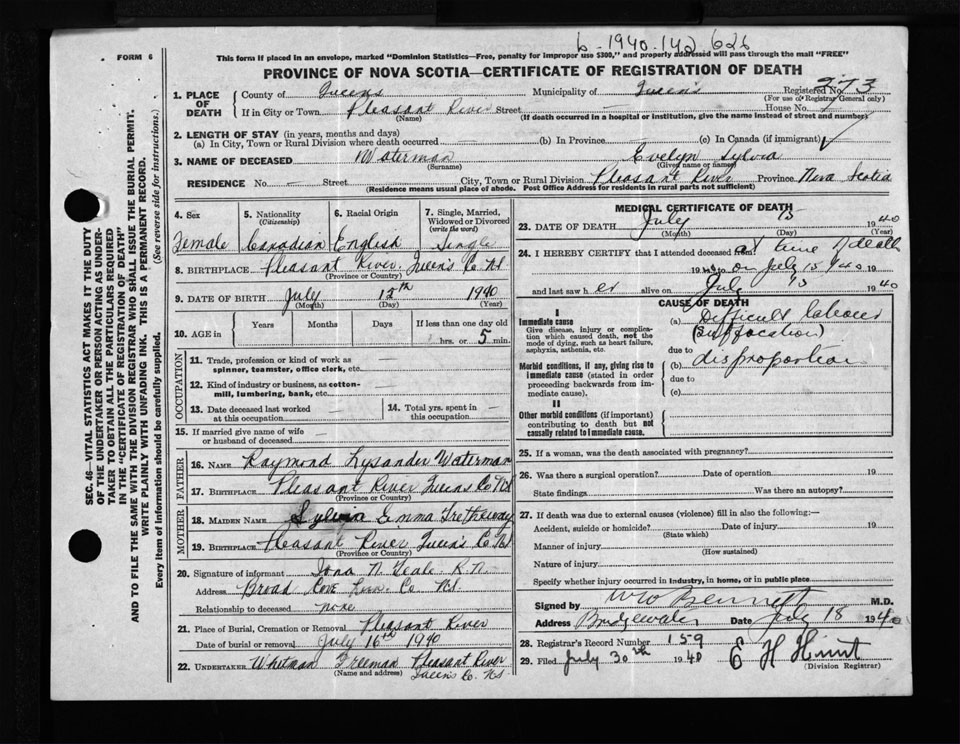 6-1940-142 626
FORM 6
This form if placed in an envelope, marked "Dominion Statistics—Free, penalty for improper use $300," and properly addressed will pass through the mail "FREE"
PROVINCE OF NOVA SCOTIA—CERTIFICATE OF REGISTRATION OF DEATH
1. PLACE OF DEATH
County of Queens Municipality of Queen's Registered No. 273
(For use of Registrar General only)
If in City or Town Pleasant River Street — House No.
(Name) (If death occurred in a hospital or institution, give the name instead of street and number)
2. LENGTH OF STAY (in years, months and days)
(a) In City, Town or Rural Division where death occurred — (b) In Province (c) In Canada (if immigrant)
3. NAME OF DECEASED Waterman Evelyn Sylvia
(Surname) (Given name or names)
RESIDENCE No. — Street City, Town or Rural Division Pleasant River Province Nova Scotia
(Residence means usual place of abode. Post Office Address for residents in rural parts not sufficient)
SEC. 46—VITAL STATISTICS ACT MAKES IT THE DUTY
OF THE UNDERTAKER OR PERSON ACTING AS UNDER-
TAKER TO OBTAIN ALL THE PARTICULARS REQUIRED
IN THE "CERTIFICATE OF REGISTRATION OF DEATH"
AND TO FILE THE SAME WITH THE DIVISION REGISTRAR WHO SHALL ISSUE THE BURIAL PERMIT.
WRITE PLAINLY WITH UNFADING INK. THIS IS A PERMANENT RECORD.
Every item of information should be carefully supplied. (See reverse side for instructions.)
4. Sex 5. Nationality (Citizenship) 6. Racial Origin 7. Single, Married, Widowed or Divorced (write the word)
Female Canadian English Single
8. BIRTHPLACE Pleasant River. Queen's Co NS
(Province or Country)
9. DATE OF BIRTH July 15th 1940
(Month) (Day) (Year)
10. AGE in Years Months Days If less than one day old
hrs. or 5 min.
OCCUPATION
11. Trade, profession or kind of work as spinner, teamster, office clerk, etc. —
12. Kind of industry or business, as cotton-mill, lumbering, bank, etc. —
13. Date deceased last worked at this occupation — 14. Total yrs. spent in this occupation —
15. If married give name of wife or husband of deceased —
FATHER
16. NAME Raymond Lysander Waterman
17. BIRTHPLACE Pleasant River Queens Co NS
(Province or Country)
MOTHER
18. MAIDEN NAME Sylvia Emma Tretheway
19. BIRTHPLACE Pleasant River Queen's Co NS
(Province or Country)
20. Signature of informant Iona N. Teale R.N.
Address Broad Cove Lun. Co. NS
Relationship to deceased none
21. Place of Burial, Cremation or Removal Pleasant River
Date of burial or removal July 16th 1940
22. UNDERTAKER Whitman Freeman Pleasant River
(Name and address) Queen's Co. NS
MEDICAL CERTIFICATE OF DEATH
23. DATE OF DEATH July 15 1940
(Month) (Day) (Year)
24. I HEREBY CERTIFY that I attended deceased from at time of death
on July 15 1940
and last saw her alive on July 15 1940
CAUSE OF DEATH
I
Immediate cause
Give disease, injury or complication which caused death, not the mode of dying, such as heart failure, asphyxia, asthenia, etc.
(a) Difficult labour
(suffocation)
due to
Morbid conditions, if any, giving rise to immediate cause (stated in order proceeding backwards from immediate cause).
(b) disproportion
due to
(c)
II
Other morbid conditions (if important) contributing to death but not causally related to immediate cause.
25. If a woman, was the death associated with pregnancy?
26. Was there a surgical operation? Date of operation 19
State findings Was there an autopsy?
27. If death was due to external causes (violence) fill in also the following:—
Accident, suicide or homicide? Date of injury 19
(State which)
Manner of injury
(How sustained)
Nature of injury
Specify whether injury occurred in Industry, in home, or in public place
Signed by W W Bennett M.D.
Address Bridgewater Date July 18 1940
28. Registrar's Record Number 159
29. Filed July 30th 1940 E H Hunt
(Division Registrar)